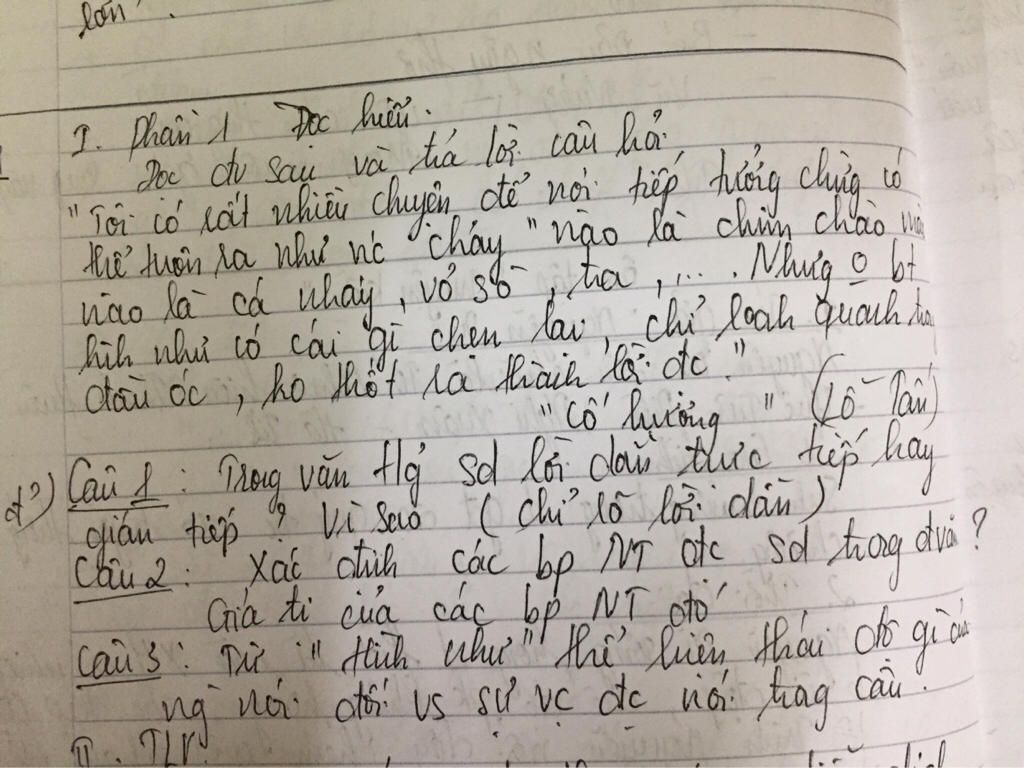 lớn".
I. Phần 1 Đọc hiểu.
Đọc đv sau và trả lời câu hỏi.
"Tôi có rất nhiều chuyện để nói tiếp tưởng chừng có
thể tuôn ra như nc chảy" nào là chim chào
nào là cá nhảy, vỏ sò, tra,.... Nhưg o bt
hình như có cái gì chen lại, chỉ loah quanh trg
đầu óc, ko thốt ra thành lời đc."
"Cố hương" (Lỗ Tấn)
Câu 1: Trong văn t/g sd lời dẫn trực tiếp hay
gián tiếp? Vì sao (chỉ rõ lời dẫn)
Câu 2: Xác định các bp NT đc sd trong đvăn?
Giá trị của các bp NT đó
Câu 3: Từ "hình như" thể hiện thái độ gì của
ng nói đối vs sự vc đc nói trog câu.
II. TLV